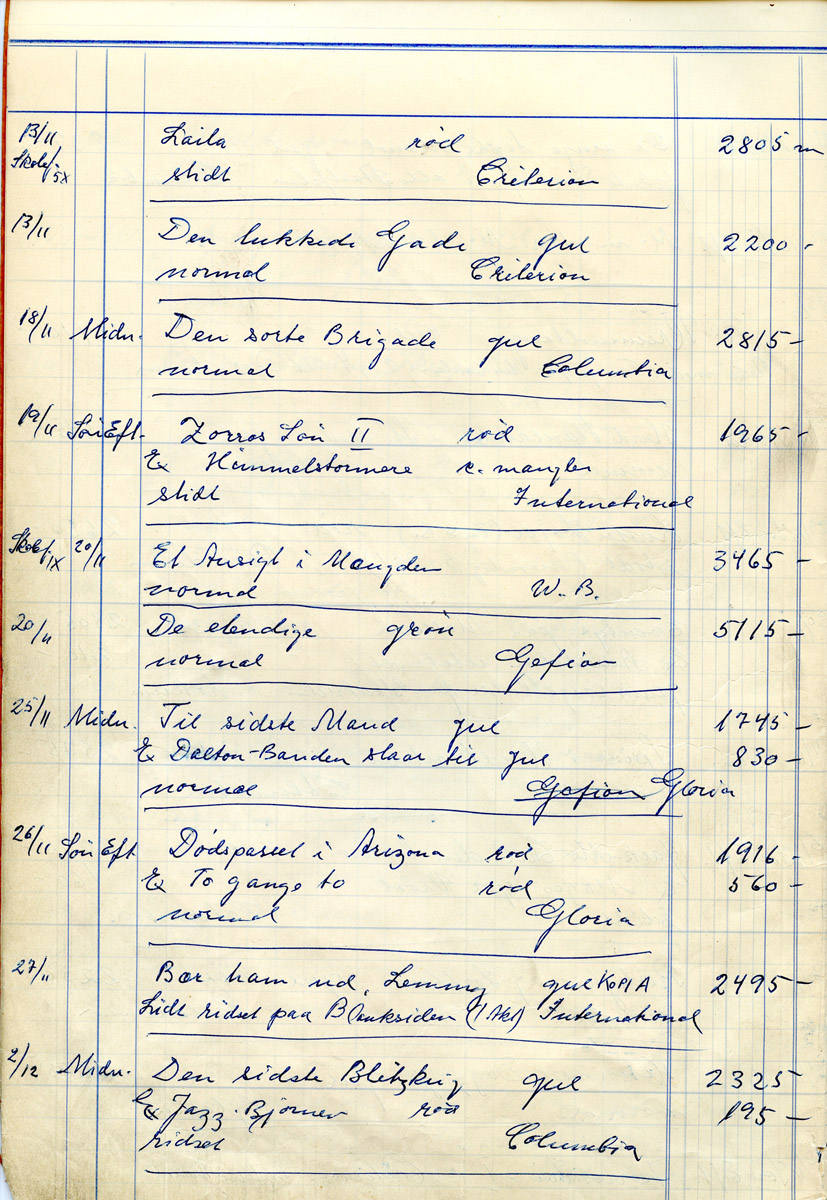 13/11 Laila rød 2805 m
Skolef. 5X slidt Criterion
13/11 Den lukkede Gade gul 2200 -
normal Criterion
18/11 Midn. Den sorte Brigade gul 2815 -
normal Columbia
19/11 Søn Eft. Zorros Søn II rød 1965 -
Ex Himmelstormere r. mangler
slidt International
Skolef. 1X 20/11 Et Ansigt i Mængden 3465 -
normal W. B.
20/11 De elendige grøn 5115 -
normal Gefion
25/11 Midn. Til sidste Mand gul 1745 -
Ex Dalton-Banden slaar til gul 830 -
normal Gefion Gloria
26/11 Søn Eft. Dødspasset i Arizona rød 1916 -
Ex To gange to rød 560 -
normal Gloria
27/11 Bær ham ud, Lemmy gul KOPI A 2495 -
Lidt ridset paa Blanksiden (1 Akt) International
2/12 Midn. Den sidste Blitzkrig gul 2325 -
Ex Jazz-Bjørnen rød 195 -
ridset Columbia